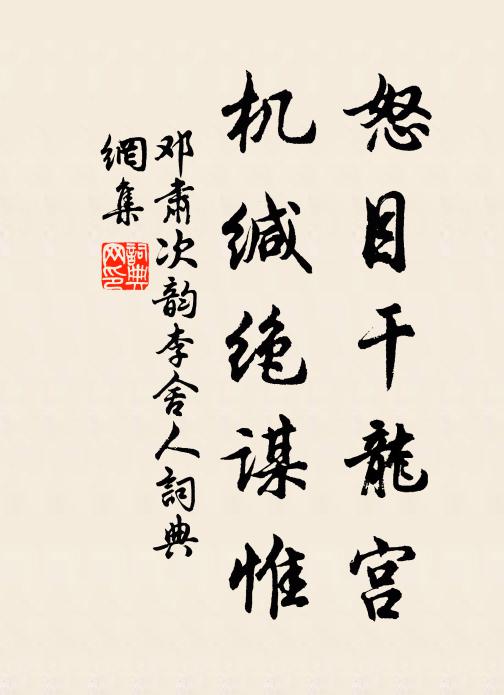 怒目干龍宫
机缄绝谋惟
邓肃次韵李舍人詞典
網集
詞典
网印